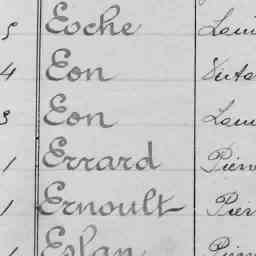 5 Eoche Loui
4 Eon Victo
3 Eon Loui
1 Errard Pierr
1 Ernoult Pier
1 Eslan Pierr